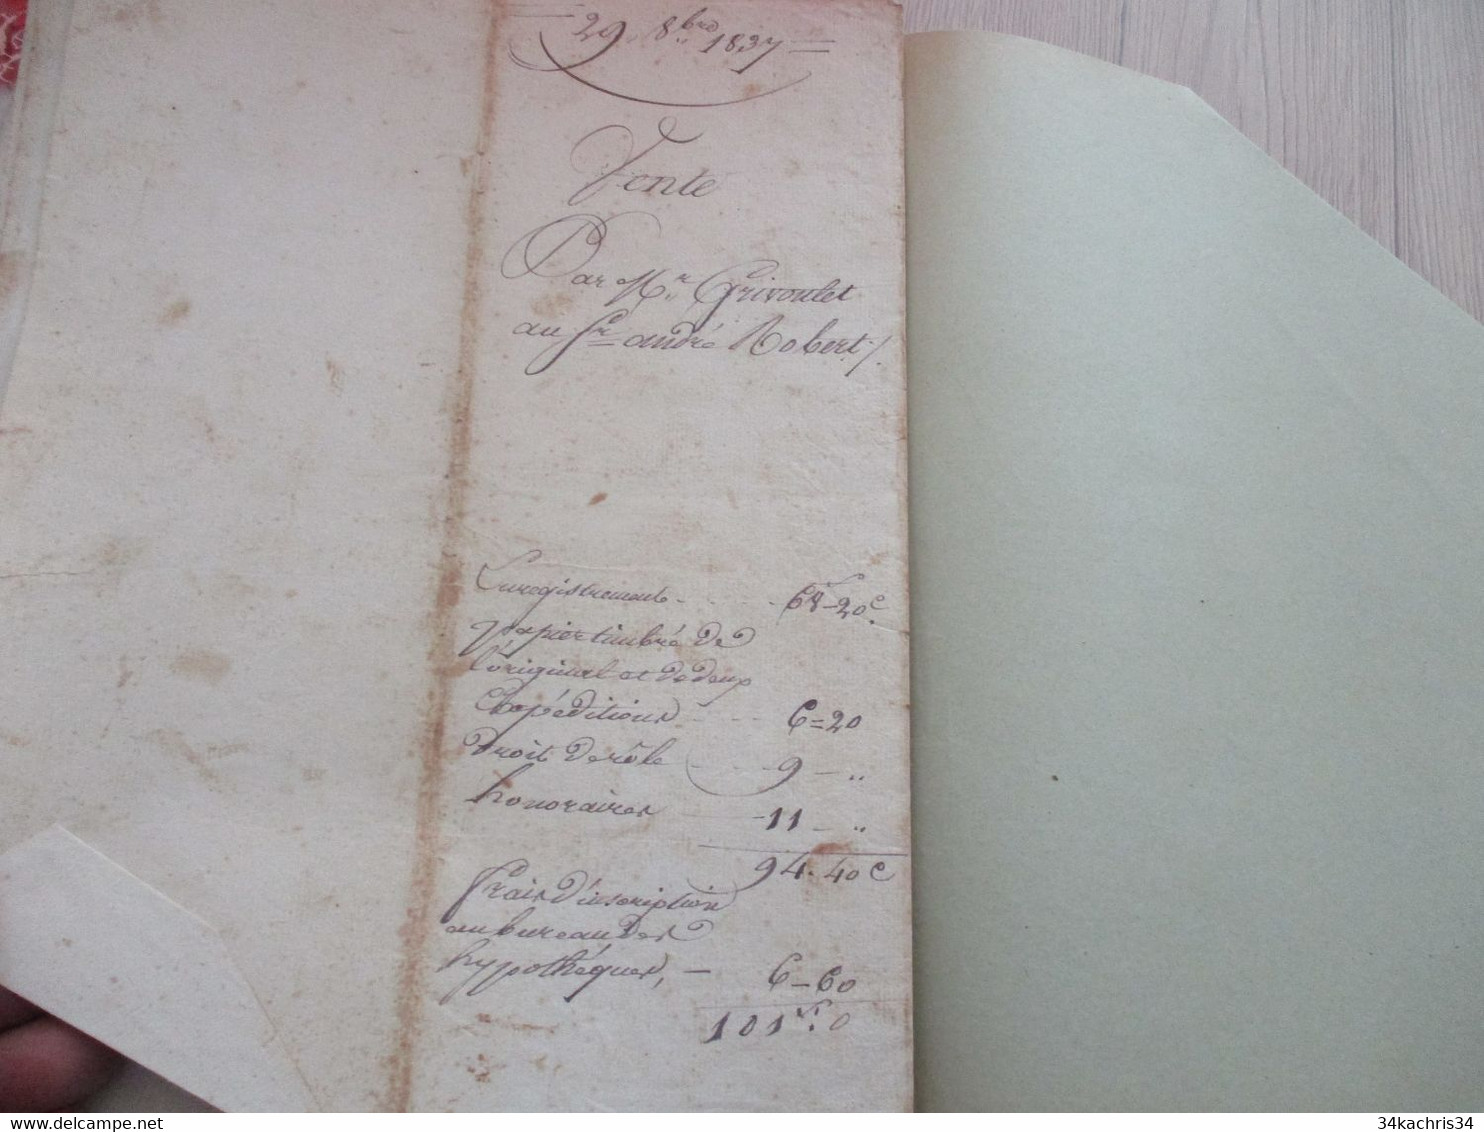 29 8bre 1837
Vente
Par Mr Grivoulet
au Sr andré Robert /.
Enregistrement - - - - 68-20c
papier timbré de
l'original et de deux
Expéditions - - - 6=20
droit de rôle - - - 9 - "
honoraires - 11 - "
94.40c
frais d'inscription
au bureau des
hypothéques, - 6-60
101f. 0
34kachris34
delcampe.net